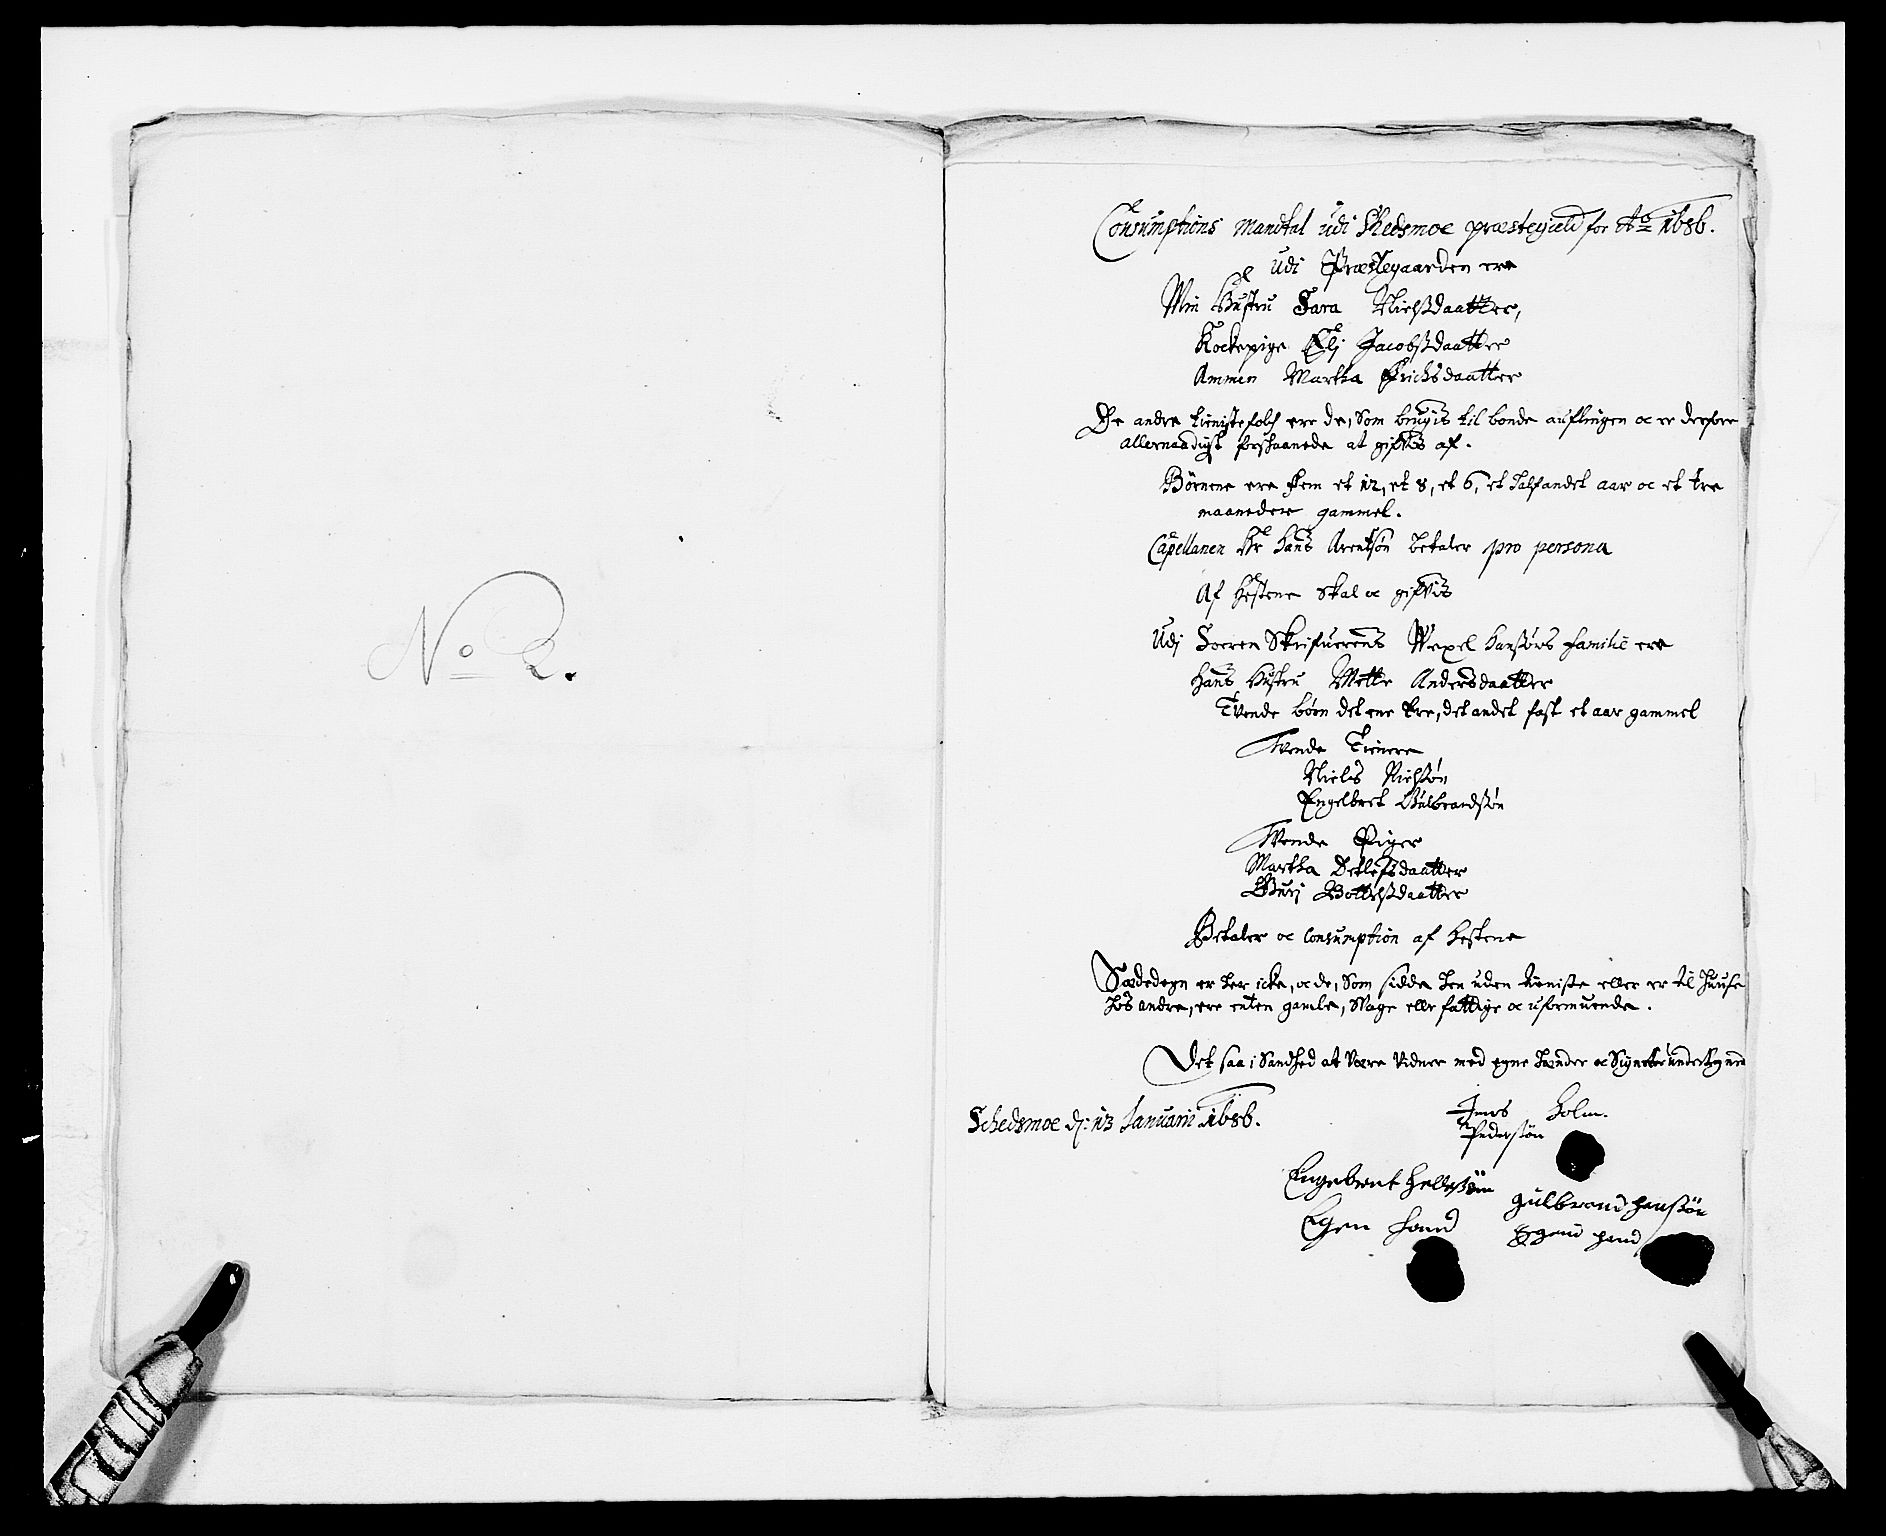 No 2.
Consumptions Mandtal udi Skedsmoe præstegield for Ao 1686.
Udi Præstegaarden ere
Min Hustru Sara Nielsdaatter,
Kockepige Elj Jacobsdaatter
Ammen Martha Erichsdaatter
De andre tienistefolch ere de, Som brugis til bonde auflingen oc er derfore
allernaadigst forskaanede at giftes af.
Börnene ere fem et 12, et 8, et 6, et halfandet aar oc et tre
maaneder gammel.
Capellanen Hr Hans Arentsøn betaler pro persona
Af hestene skal oc gifvis
Udj Soeren Skrifuerens Wexel Hansøns familie ere
Hans Hustru Mette Andersdaatter
Tvende börn det ene tre, det andet fast et aar gammel
Tvende Tienere
Niels Nielsøn
Engelbret Gulbrandsøn
Tvende Piger
Martha Detlefsdaatter
Gurj Bottelsdaatter
Betaler oc Consumption af hestene
Sædedegn er her icke, oc de, Som sidde hen uden tieniste eller er til huuse
hos andre, ere enten gamle, Svage eller fattige oc uformuende.
Det saa i Sandhed at være vidner med egne hænder oc Signeter undertegned
Schedsmoe d: 13 Januarii 1686.
Jens Holm.
Pedersøn
Engebret Hellesøn
Egen haand
Gulbrand Hansøn
Egend hand